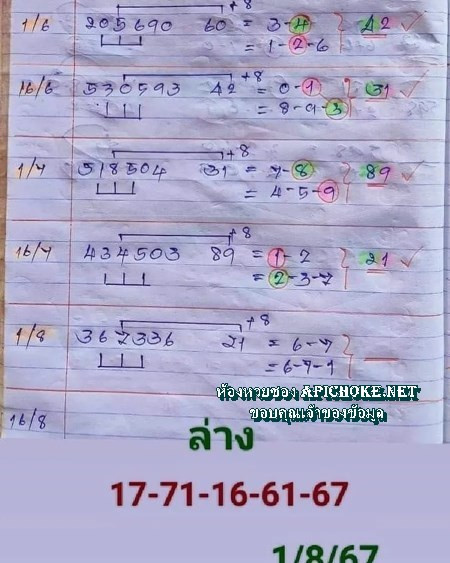 +8
1/6 205690 60 = 3-4 42 ✓
= 1-2-6
+8
16/6 530593 42 = 0-1 31 ✓
= 8-9-3
+8
1/7 518504 31 = 7-8 89 ✓
= 4-5-9
+8
16/7 434503 89 = 1-2 21 ✓
= 2-3-7
+8
1/8 367336 21 = 6-7
= 6-7-1
ห้องหวยซอง APICHOKE.NET
ขอบคุณเจ้าของข้อมูล
16/8
ล่าง
17-71-16-61-67
1/8/67